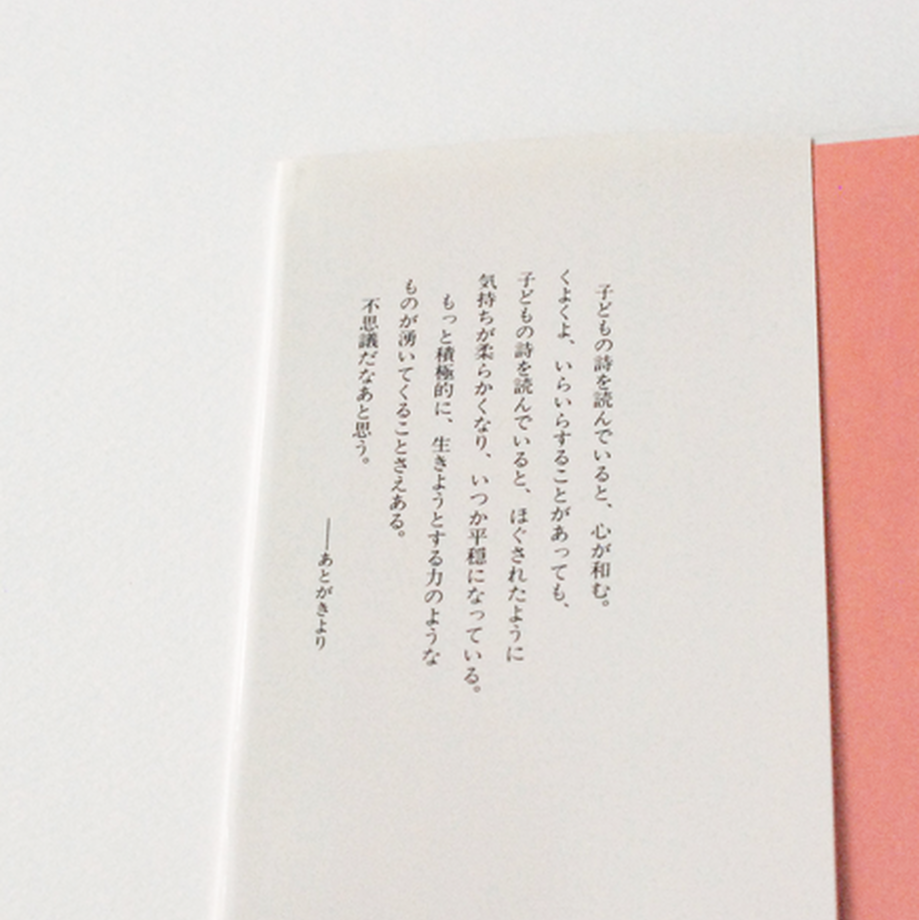 子どもの詩を読んでいると、心が和む。
くよくよ、いらいらすることがあっても、
子どもの詩を読んでいると、ほぐされたように
気持ちが柔らかくなり、いつか平穏になっている。
もっと積極的に、生きようとする力のような
ものが湧いてくることさえある。
不思議だなあと思う。
——あとがきより